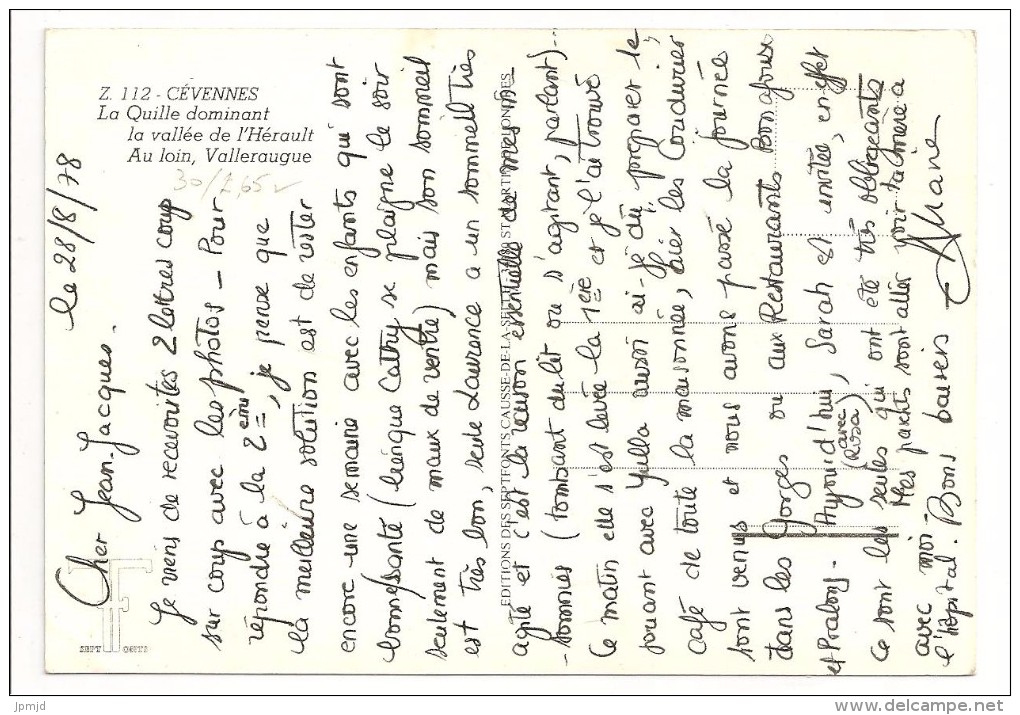 Z. 112 - CÉVENNES
La Quille dominant
la vallée de l'Hérault
Au loin, Valleraugue
30/265
le 28/8/78
Cher Jean-Jacques.
Je viens de recevoir tes 2 lettres coup
sur coup avec les photos - Pour
répondre à la 2ème, je pense que
la meilleure solution est de rester
encore une semaine avec les enfants qui sont
en bonne santé (bien que Cathy se plaigne le soir
seulement de maux de ventre) mais son sommeil
est très bon, seule Laurence a un sommeil très
agité et c'est la raison essentielle de mes in-
-somnies (tombant du lit ou s'agitant, parlant)...
Ce matin elle s'est levée la 1ère et je l'ai trouvé
jouant avec Yulla aussi ai-je dû préparer le
café de toute la maisonnée, hier les Coudurier
sont venus et nous avons passé la journée
dans les Gorges ou aux Restaurants Bonafoux
et Pralong. Aujourd'hui, Sarah est invitée, en effet
(avec Rosa)
ce sont les seules qui ont été très obligeantes
avec moi. Mes parents sont allés voir ta mère à
l'hôpital. Bons baisers
Marie
EDITIONS DES SEPTFONTS CAUSSE-DE-LA-SELLE
SEPT FONTS
jpmjd
delcampe.net